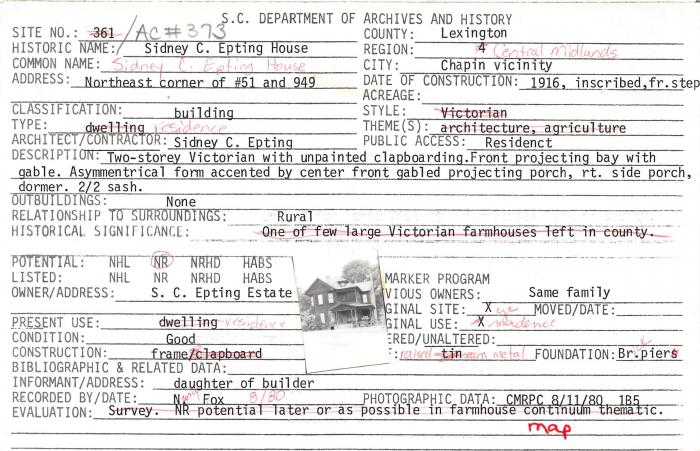 S.C. DEPARTMENT OF ARCHIVES AND HISTORY
SITE NO.: 361 / AC#373 COUNTY: Lexington
HISTORIC NAME: Sidney C. Epting House REGION: 4 Central Midlands
COMMON NAME: Sidney C. Epting House CITY: Chapin vicinity
ADDRESS: Northeast corner of #51 and 949 DATE OF CONSTRUCTION: 1916, inscribed,fr.step
ACREAGE:
CLASSIFICATION: building STYLE: Victorian
TYPE: dwelling residence THEME(S): architecture, agriculture
ARCHITECT/CONTRACTOR: Sidney C. Epting PUBLIC ACCESS: Residenct
DESCRIPTION: Two-storey Victorian with unpainted clapboarding.Front projecting bay with
gable. Asymmetrical form accented by center front gabled projecting porch, rt. side porch,
dormer. 2/2 sash.
OUTBUILDINGS: None
RELATIONSHIP TO SURROUNDINGS: Rural
HISTORICAL SIGNIFICANCE: One of few large Victorian farmhouses left in county.
POTENTIAL: NHL NR NRHD HABS
LISTED: NHL NR NRHD HABS MARKER PROGRAM
OWNER/ADDRESS: S. C. Epting Estate VIOUS OWNERS: Same family
GINAL SITE: X yes MOVED/DATE:
PRESENT USE: dwelling residence GINAL USE: X residence
CONDITION: Good ERED/UNALTERED:
CONSTRUCTION: frame/clapboard F: raised tin seam metal FOUNDATION: Br.piers
BIBLIOGRAPHIC & RELATED DATA:
INFORMANT/ADDRESS: daughter of builder
RECORDED BY/DATE: N. Fox 8/80 PHOTOGRAPHIC DATA: CMRPC 8/11/80 1B5
EVALUATION: Survey. NR potential later or as possible in farmhouse continuum thematic.
map